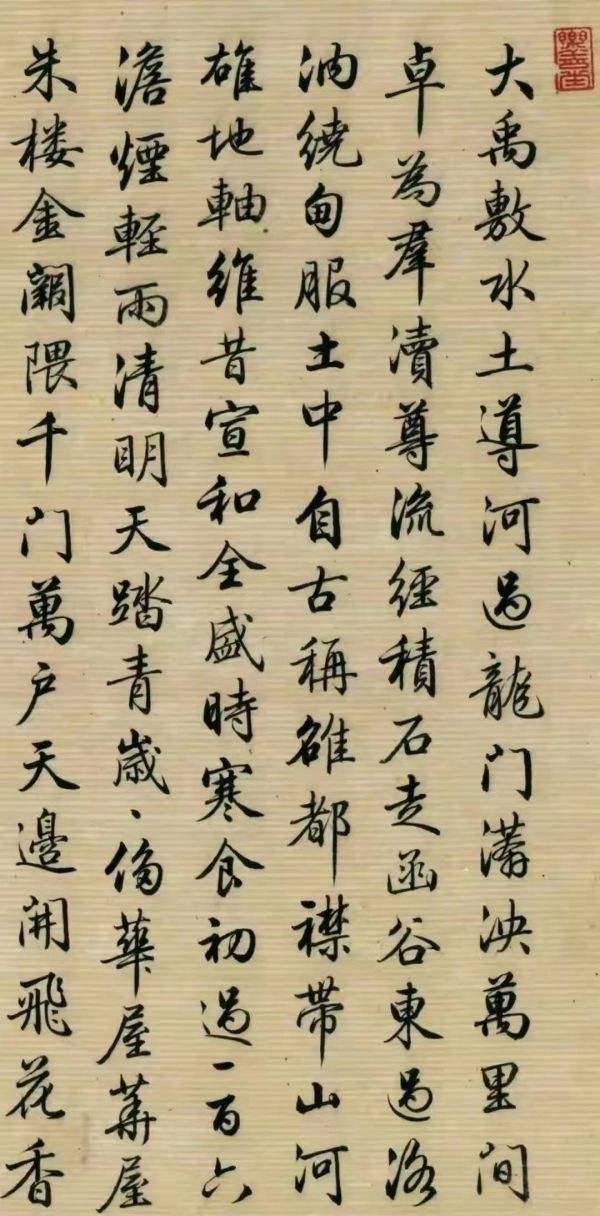 大禹敷水土導河過龍门漭泱萬里间
卓為羣瀆尊流經積石走函谷東過洛
汭繞甸服土中自古稱雒都襟帶山河
雄地軸維昔宣和全盛時寒食初過一百六
澹煙輕雨清明天踏青歲、侈華屋華屋
朱楼金闕隈千门萬户天邊開飛花香